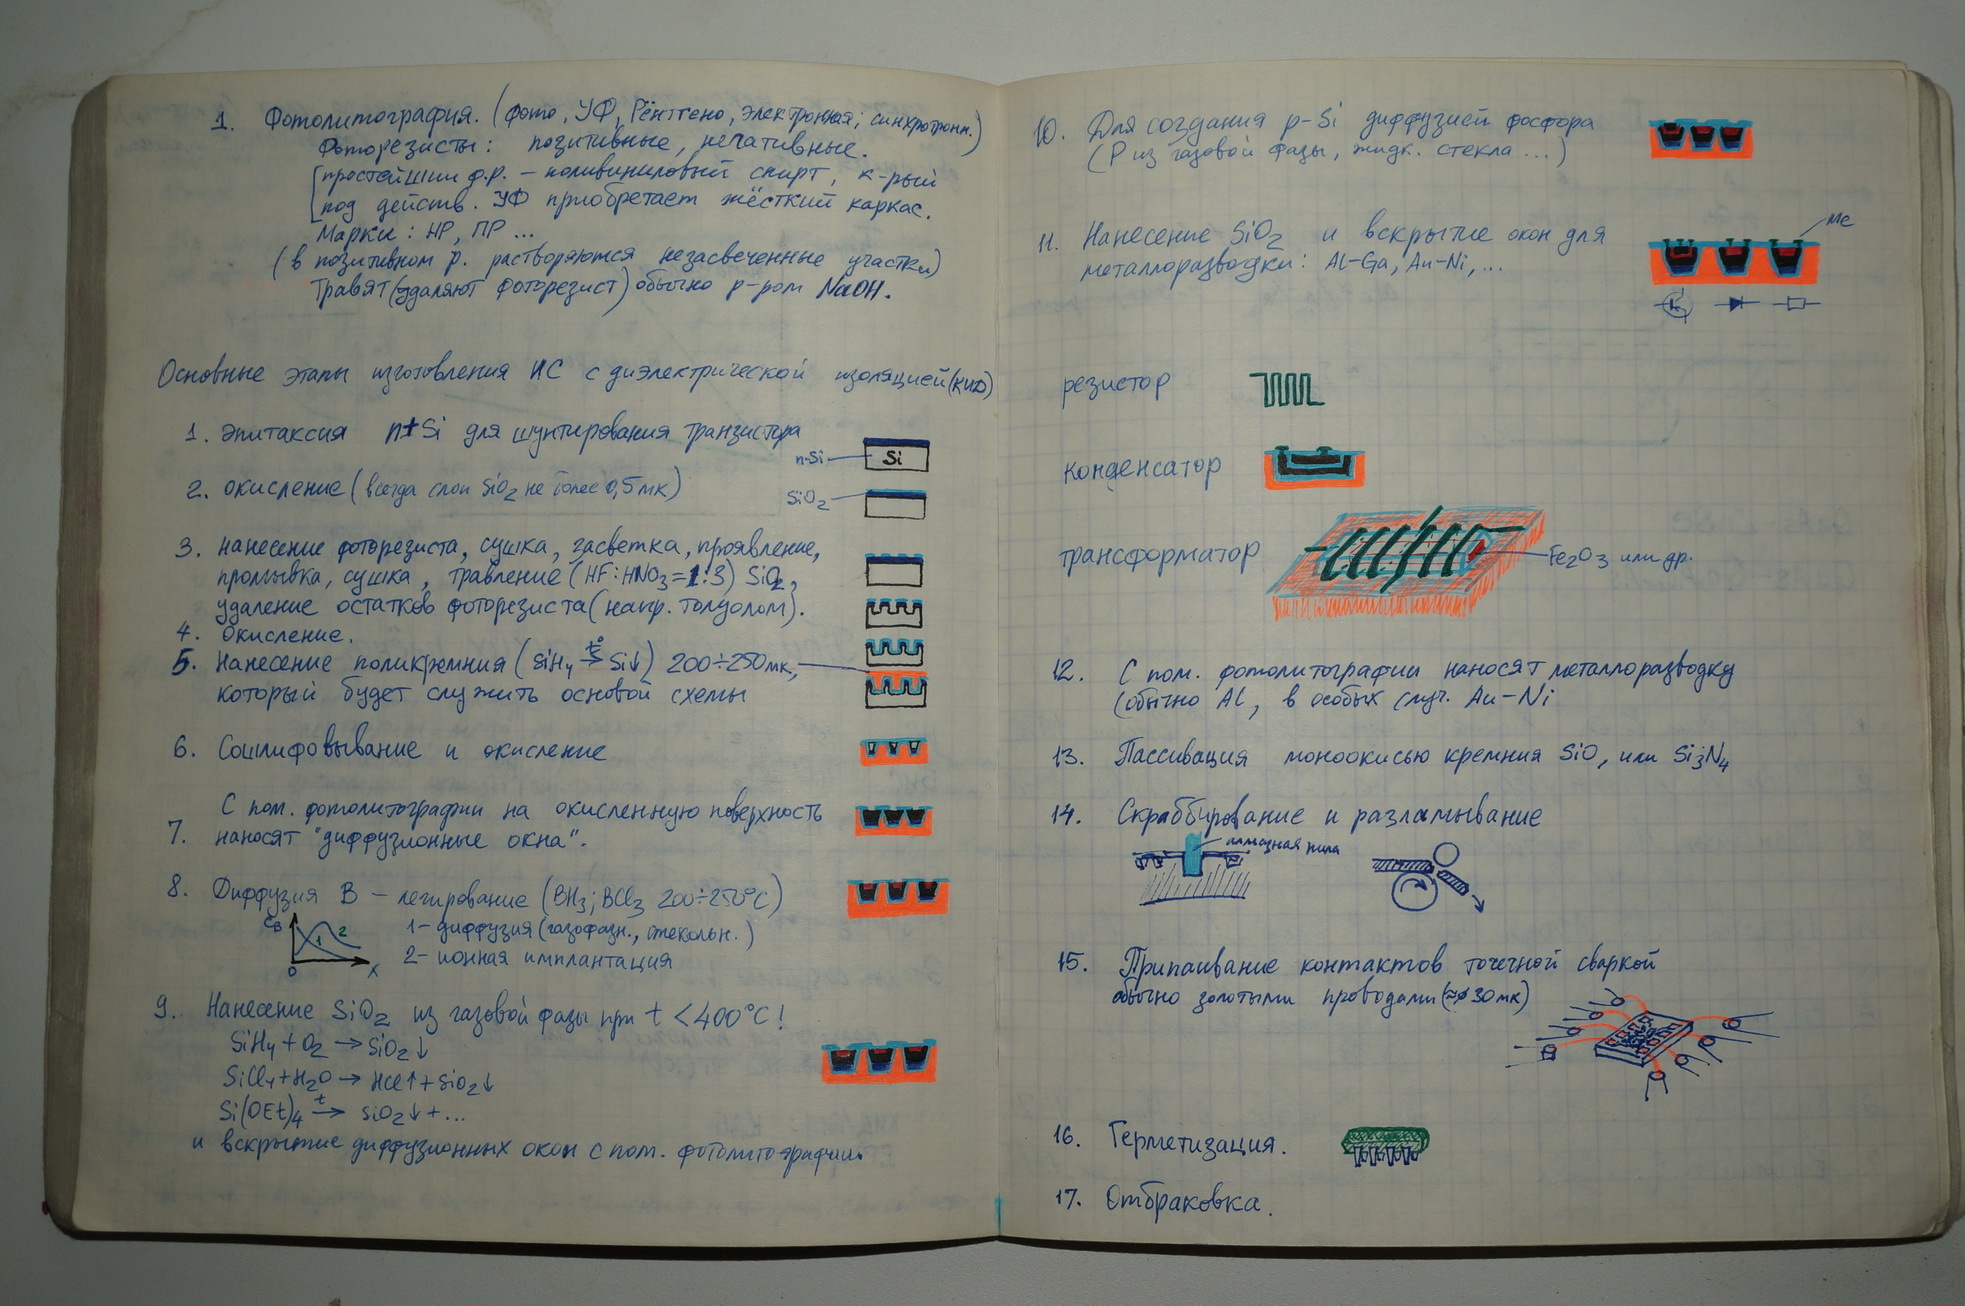 1. Фотолитография. (фото, УФ, Рентгено, электронная; синхротронн.)
Фоторезисты: позитивные, негативные.
[простейший ф.р. – поливиниловый спирт, к-рый
под действ. УФ приобретает жёсткий каркас.
Марки: НР, ПР ...
(в позитивном р. растворяются незасвеченные участки)
Травят (удаляют фоторезист) обычно р-ром NaOH.
Основные этапы изготовления ИС с диэлектрической изоляцией (КИД)
1. Эпитаксия n+Si для шунтирования транзистора
n-Si
Si
2. окисление (всегда слой SiO2 не более 0,5мк)
SiO2
3. нанесение фоторезиста, сушка, засветка, проявление,
промывка, сушка, травление (HF:HNO3=1:3) SiO2,
удаление остатков фоторезиста (напр. толуолом).
4. Окисление.
5. Нанесение поликремния (SiH4 t°→ Si↓) 200÷250мк,
который будет служить основой схемы
6. Сошлифовывание и окисление
С пом. фотолитографии на окисленную поверхность
7. наносят "диффузионные окна".
8. Диффузия B – легирование (BH3; BCl3 200÷250°C)
CB 1 2 0 x
1- диффузия (газофазн., стекольн.)
2- ионная имплантация
9. Нанесение SiO2 из газовой фазы при t <400°C!
SiH4 + O2 → SiO2↓
SiCl4+H2O → HCl↑+SiO2↓
Si(OEt)4 t→ SiO2↓+...
и вскрытие диффузионных окон с пом. фотолитографии.
10. Для создания p-Si диффузией фосфора
(P из газовой фазы, жидк. стекла ...)
11. Нанесение SiO2 и вскрытие окон для
металлоразводки: Al-Ga, Au-Ni, ...
Me
резистор
конденсатор
трансформатор
Fe2O3 или др.
12. С пом. фотолитографии наносят металлоразводку
(обычно Al, в особых случ. Au-Ni
13. Пассивация моноокисью кремния SiO, или Si3N4
14. Скрабирование и разламывание
алмазная пила
15. Припаивание контактов точечной сваркой
обычно золотыми проводами (≈⌀30мк)
16. Герметизация.
17. Отбраковка.